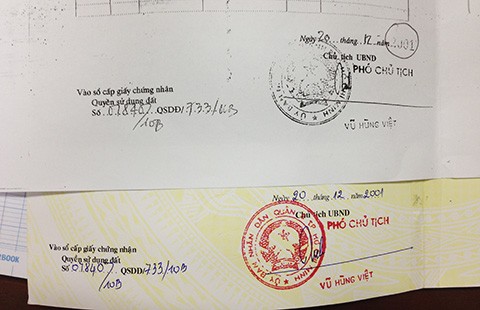 Ngày 20 tháng 12 năm 2001
Chủ tịch UBND
PHÓ CHỦ TỊCH
Vào sổ cấp giấy chứng nhận
Quyền sử dụng đất
Số 01840/ QSDĐ/733/10B
/10B
VŨ HÙNG VIỆT
Ngày 20 tháng 12 năm 2001
Chủ tịch UBND
PHÓ CHỦ TỊCH
ỦY BAN NHÂN DÂN QUẬN
Vào sổ cấp giấy chứng nhận
Quyền sử dụng đất
Số 01840/ QSDĐ/733/10B
/10B
VŨ HÙNG VIỆT